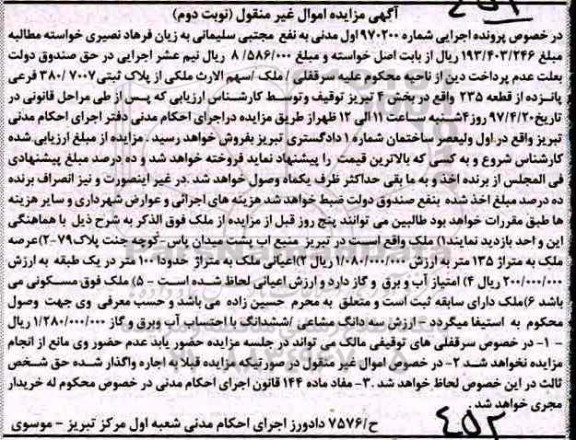 ۴۵۲
آگهی مزایده اموال غیر منقول (نوبت دوم)
در خصوص پرونده اجرایی شماره ۹۷۰۲۰۰ اول مدنی به نفع مجتبی سلیمانی به زیان فرهاد نصیری خواسته مطالبه
مبلغ ۱۹۳/۴۰۳/۲۴۶ ریال از بابت اصل خواسته و مبلغ ۸/۵۸۶/۰۰۰ ریال نیم عشر اجرایی در حق صندوق دولت
بعلت عدم پرداخت دین از ناحیه محکوم علیه سرقفلی / ملک /سهم الارث ملکی از پلاک ثبتی ۷۰۰۷/ ۳۸۰ فرعی
پانزده از قطعه ۲۳۵ واقع در بخش ۴ تبریز توقیف وتوسط کارشناس ارزیابی که پس از طی مراحل قانونی در
تاریخ ۹۷/۴/۲۰ روز ۴شنبه ساعت ۱۱ الی ۱۲ ظهر از طریق مزایده دراجرای احکام مدنی دفتر اجرای احکام مدنی
تبریز واقع در اول ولیعصر ساختمان شماره ۱ دادگستری تبریز بفروش خواهد رسید . مزایده از مبلغ ارزیابی شده
کارشناس شروع و به کسی که بالاترین قیمت را پیشنهاد نماید فروخته خواهد شد و ده درصد مبلغ پیشنهادی
فی المجلس از برنده اخذ و به ما بقی حداکثر ظرف یکماه وصول خواهد شد .در غیر اینصورت و نیز انصراف برنده
ده درصد مبلغ اخذ شده بنفع صندوق دولت ضبط خواهد شد هزینه های اجرائی و عوارض شهرداری و سایر هزینه
ها طبق مقررات خواهد بود طالبین می توانند پنج روز قبل از مزایده از ملک فوق الذکر به شرح ذیل با هماهنگی
این و احد بازدید نمایند۱) ملک واقع است در تبریز منبع اب پشت میدان پاس- کوچه جنت پلاک ۷۹-۲)عرصه
ملک به متراژ ۱۳۵ متر به ارزش ۱/۰۸۰/۰۰۰/۰۰۰ ریال ۳)اعیانی ملک به متراژ حدودا ۱۰۰ متر در یک طبقه به ارزش
۲۰۰/۰۰۰/۰۰۰ ریال ۴) امتیاز آب و برق و گاز دارد و ارزش اعیانی لحاظ شده است - ۵) ملک فوق مسکونی می
باشد ۶)ملک دارای سابقه ثبت است و متعلق به محرم حسین زاده می باشد و حسب معرفی وی جهت وصول
محکوم به استیفا میگردد – ارزش سه دانگ مشاعی /ششدانگ با احتساب آب وبرق و گاز ۱/۲۸۰/۰۰۰/۰۰۰ ریال
- ۱- در خصوص سرقفلی های توقیفی مالک می تواند در جلسه مزایده حضور یابد عدم حضور وی مانع از انجام
مزایده نخواهد شد ۲- در خصوص اموال غیر منقول در صورتیکه مزایده قبلا به اجاره واگذار شده حق شخص
ثالث در این خصوص لحاظ خواهد شد .۳- مفاد ماده ۱۴۴ قانون اجرای احکام مدنی در خصوص محکوم له خریدار
مجری خواهد شد .
ح/۷۵۷۶ دادورز اجرای احکام مدنی شعبه اول مرکز تبریز - موسوی
۴۵۲